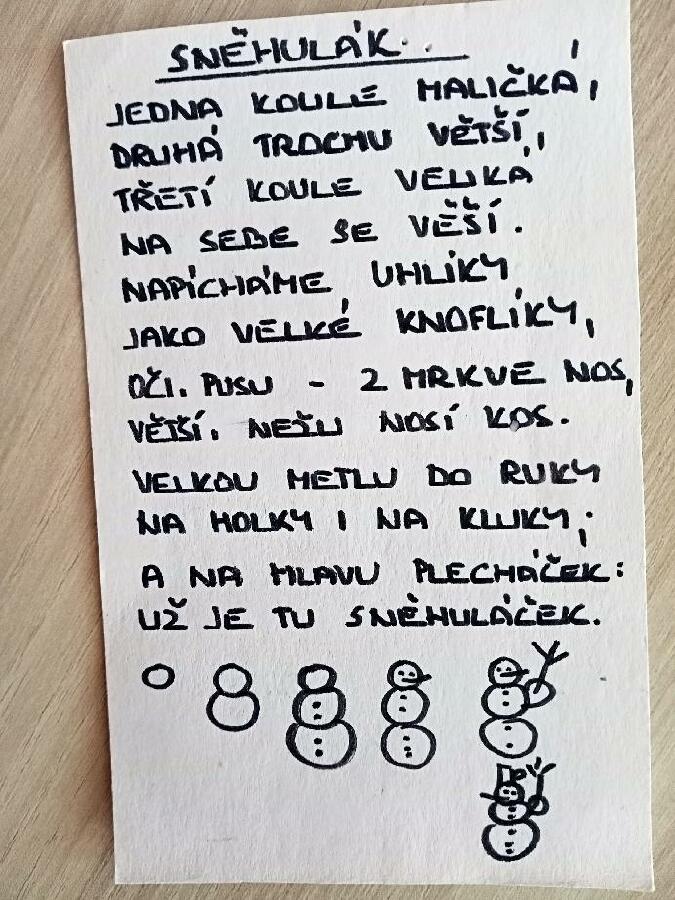 SNĚHULÁK..
JEDNA KOULE MALIČKÁ,
DRUHÁ TROCHU VĚTŠÍ,
TŘETÍ KOULE VELIKÁ
NA SEBE SE VĚŠÍ.
NAPÍCHÁME UHLÍKY
JAKO VELKÉ KNOFLÍKY,
OČI. PUSU - Z MRKVE NOS,
VĚTŠÍ. NEŽLI NOSÍ KOS.
VELKOU METLU DO RUKY
NA HOLKY I NA KLUKY;
A NA HLAVU PLECHÁČEK:
UŽ JE TU SNĚHULÁČEK.